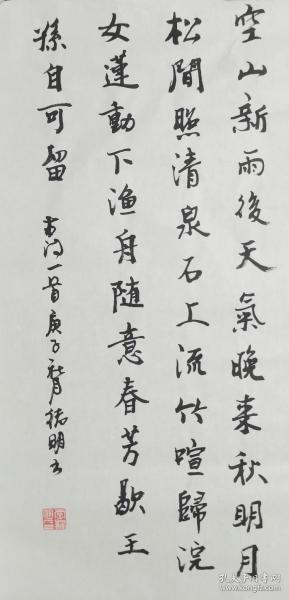 空山新雨後天氣晚来秋明月
松間照清泉石上流竹喧歸浣
女蓮動下渔舟随意春芳歇王
孫自可留
古诗一首庚子
明书
孔夫子旧书网